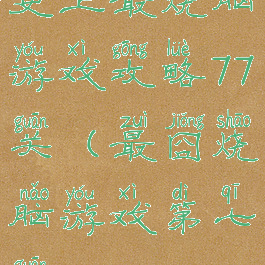 史上最烧脑
yóu xì gōng lüè
游戏攻略77
guān zuì jiǒng shāo
关（最囧烧
nǎo yóu xì dì qī
脑游戏第七
guān